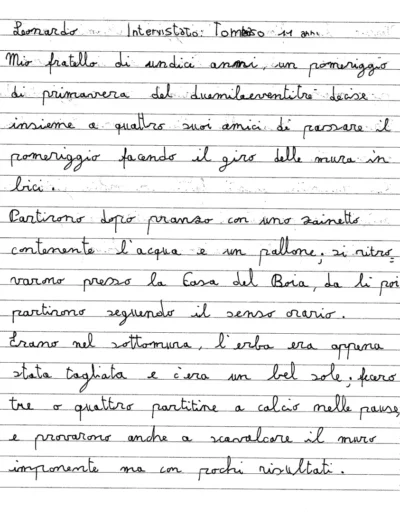 Leonardo Intervistato: Tommaso 11 anni
Mio fratello di undici anni, un pomeriggio
di primavera del duemilaeventitré decise
insieme a quattro suoi amici di passare il
pomeriggio facendo il giro delle mura in
bici.
Partirono dopo pranzo con uno zainetto
contenente l'acqua e un pallone; si ritro-
varono presso la Casa del Boia, da lì poi
partirono seguendo il senso orario.
Erano nel sottomura, l'erba era appena
stata tagliata e c'era un bel sole; fecero
tre o quattro partitine a calcio nelle pause,
e provarono anche a scavalcare il muro
imponente ma con pochi risultati.